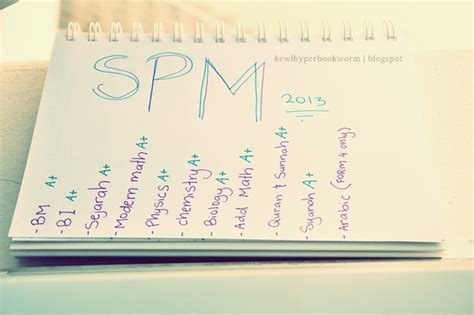 kewlhyperbookworm | blogspot
SPM
2013
- BM A+
- BI A+
- Sejarah A+
- Modern math A+
- Physics A+
- chemistry A+
- Biology A+
- Add Math A+
- Quran & Sunnah A+
- Syariah A+
- Arabic (Form 4 only)